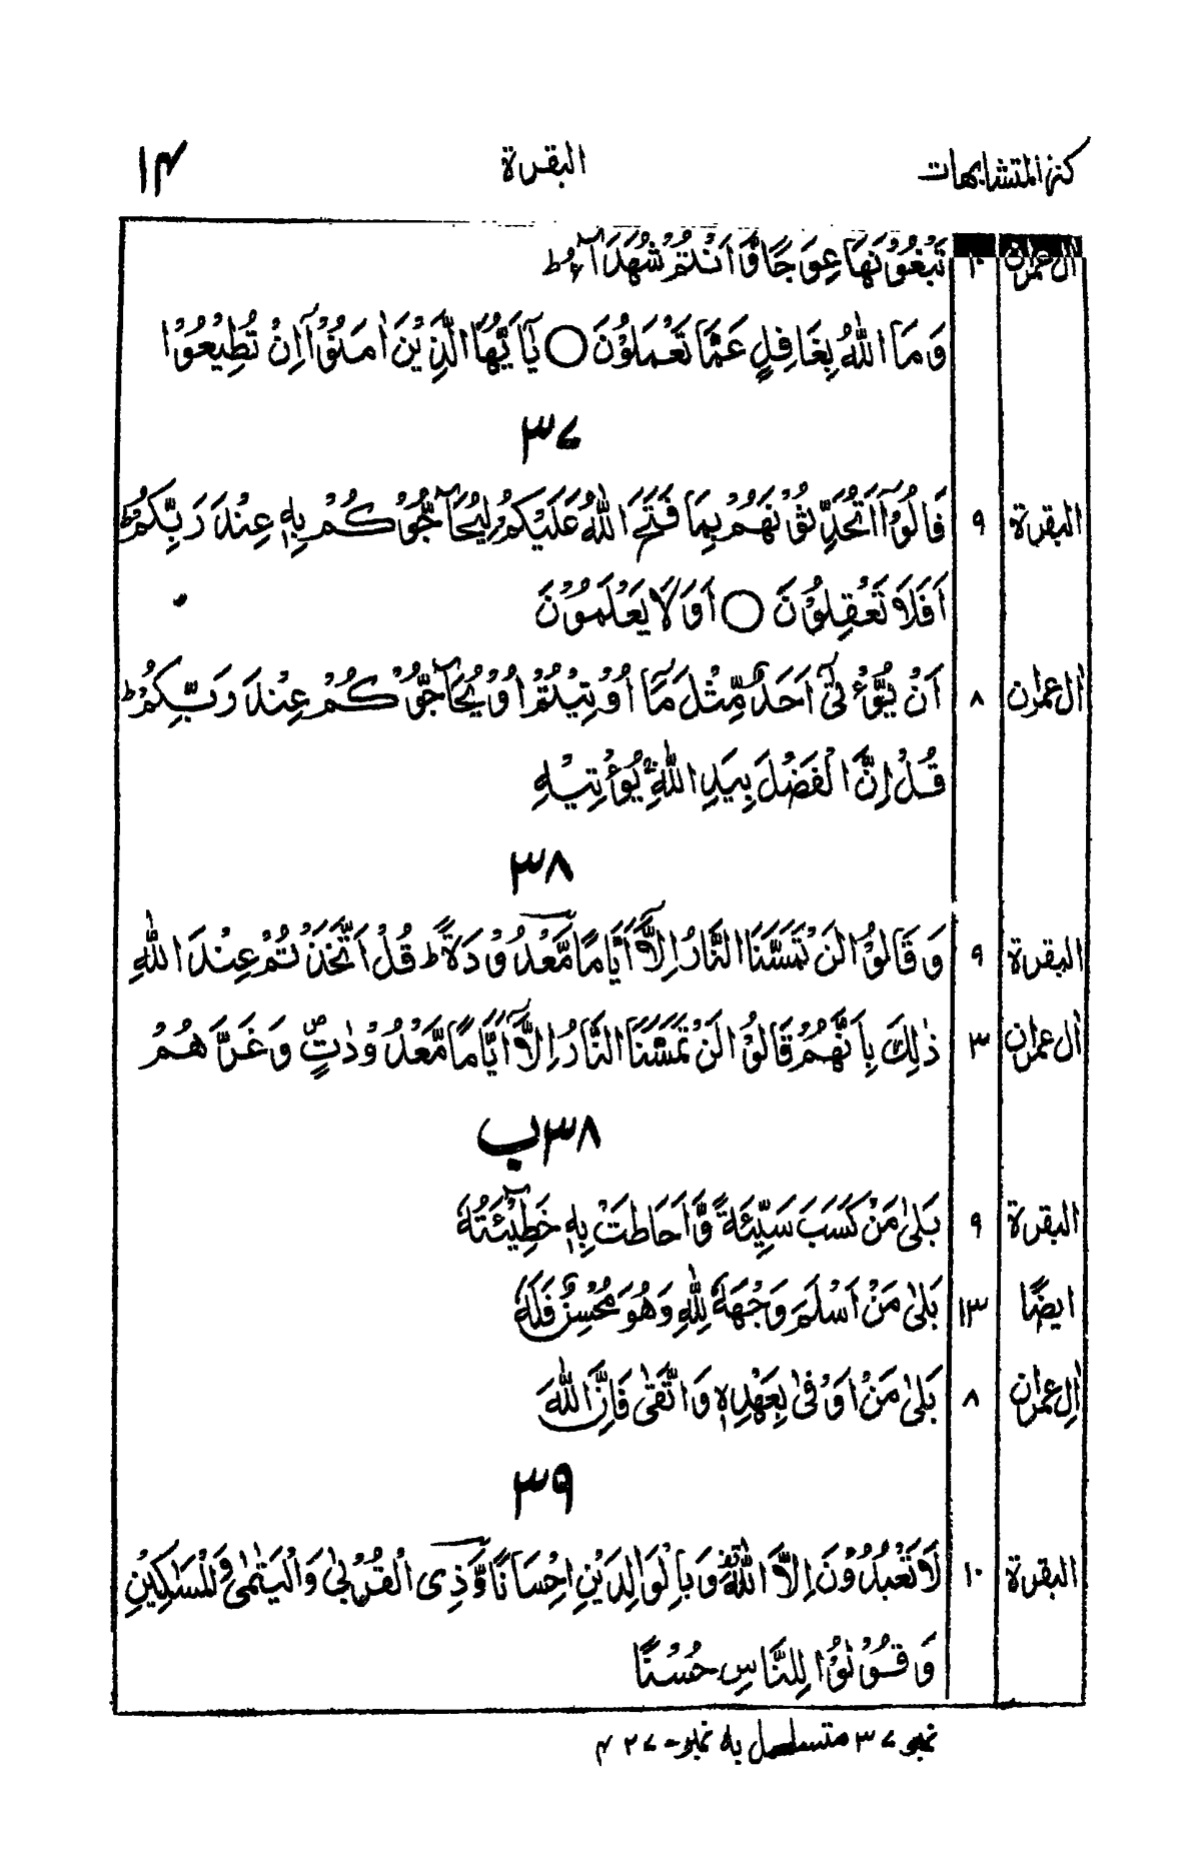 كنز المتشابهات البقرة ١٤
اٰل عمرٰن ١٠ تَبْغُوْنَهَا عِوَجًا وَّاَنْتُمْ شُهَدَآءُ ؕ
وَمَا اللّٰهُ بِغَافِلٍ عَمَّا تَعْمَلُوْنَ ○ يٰۤاَيُّهَا الَّذِيْنَ اٰمَنُوْۤا اِنْ تُطِيْعُوْا
٣٧
البقرة ٩ قَالُوْۤا اَتُحَدِّثُوْنَهُمْ بِمَا فَتَحَ اللّٰهُ عَلَيْكُمْ لِيُحَآجُّوْكُمْ بِهٖ عِنْدَ رَبِّكُمْ ؕ
اَفَلَا تَعْقِلُوْنَ ○ اَوَلَا يَعْلَمُوْنَ
اٰل عمرٰن ٨ اَنْ يُّؤْتٰۤى اَحَدٌ مِّثْلَ مَاۤ اُوْتِيْتُمْ اَوْ يُحَآجُّوْكُمْ عِنْدَ رَبِّكُمْ ؕ
قُلْ اِنَّ الْفَضْلَ بِيَدِ اللّٰهِ ۚ يُؤْتِيْهِ
٣٨
البقرة ٩ وَقَالُوْا لَنْ تَمَسَّنَا النَّارُ اِلَّاۤ اَيَّامًا مَّعْدُوْدَةً ؕ قُلْ اَتَّخَذْتُمْ عِنْدَ اللّٰهِ
اٰل عمرٰن ٣ ذٰلِكَ بِاَنَّهُمْ قَالُوْا لَنْ تَمَسَّنَا النَّارُ اِلَّاۤ اَيَّامًا مَّعْدُوْدٰتٍ ۪ وَغَرَّهُمْ
٣٨ب
البقرة ٩ بَلٰى مَنْ كَسَبَ سَيِّئَةً وَّاَحَاطَتْ بِهٖ خَطِيْٓئَتُهٗ
ايضًا ١٣ بَلٰى مَنْ اَسْلَمَ وَجْهَهٗ لِلّٰهِ وَهُوَ مُحْسِنٌ فَلَهٗ
اٰل عمرٰن ٨ بَلٰى مَنْ اَوْفٰى بِعَهْدِهٖ وَاتَّقٰى فَاِنَّ اللّٰهَ
٣٩
البقرة ١٠ لَا تَعْبُدُوْنَ اِلَّا اللّٰهَ وَبِالْوَالِدَيْنِ اِحْسَانًا وَّذِى الْقُرْبٰى وَالْيَتٰمٰى وَالْمَسٰكِيْنِ
وَقُوْلُوْا لِلنَّاسِ حُسْنًا
نمبر ٣٧ متسلسل به نمبر- ٤٢٧